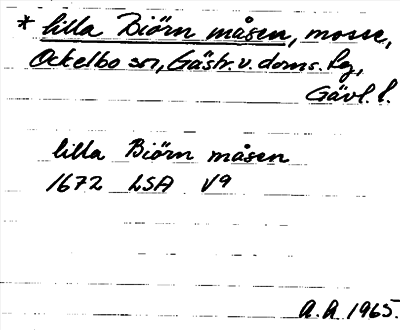 * lilla Biörn måsen, mosse,
Ockelbo sn, Gästr. v. doms. lg,
Gävl. l.
lilla Biörn måsen
1672 LSA V9
A. A 1965.